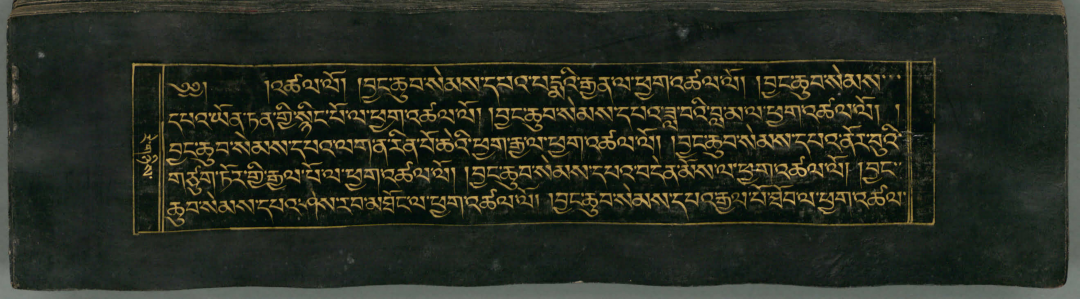 ༄༅། །འཚལ་ལོ། །བྱང་ཆུབ་སེམས་དཔའ་པདྨའི་རྒྱན་ལ་ཕྱག་འཚལ་ལོ། །བྱང་ཆུབ་སེམས་
དཔའ་ཡོན་ཏན་གྱི་སྙིང་པོ་ལ་ཕྱག་འཚལ་ལོ། །བྱང་ཆུབ་སེམས་དཔའ་ཟླ་བའི་བླ་མ་ལ་ཕྱག་འཚལ་ལོ། །
བྱང་ཆུབ་སེམས་དཔའ་ལག་ན་རིན་པོ་ཆེའི་ཕྱག་རྒྱ་ལ་ཕྱག་འཚལ་ལོ། །བྱང་ཆུབ་སེམས་དཔའ་ནོར་བུའི་
གཙུག་ཏོར་གྱི་རྒྱལ་པོ་ལ་ཕྱག་འཚལ་ལོ། །བྱང་ཆུབ་སེམས་དཔའ་བདེན་མོས་ལ་ཕྱག་འཚལ་ལོ། །བྱང་
ཆུབ་སེམས་དཔའ་ཤེས་རབ་མཐོང་ལ་ཕྱག་འཚལ་ལོ། །བྱང་ཆུབ་སེམས་དཔའ་རྒྱལ་པོ་ཐོབ་ལ་ཕྱག་འཚལ་